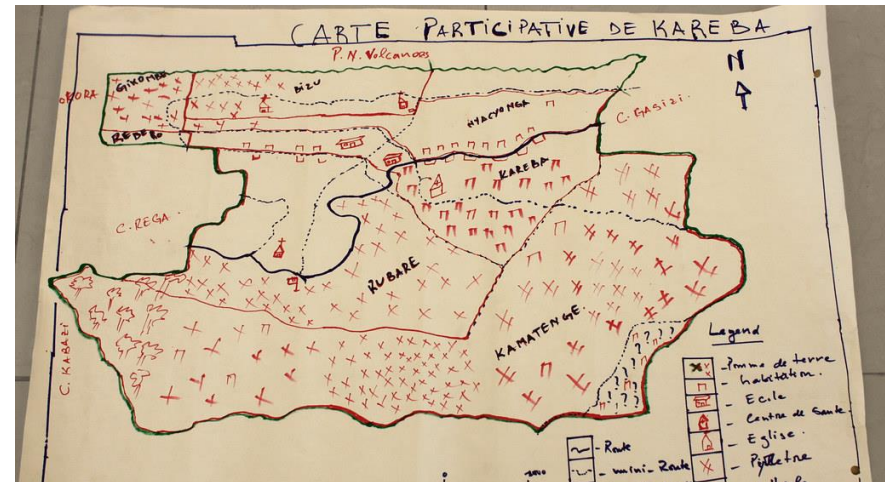 CARTE PARTICIPATIVE DE KAREBA
P.N. Volcanoes
N
GIKOMBA
BIZU
NYACYONGA
C. GASIZI
REDERO
KAREBA
C. REGA
RUBARE
KAMATENGE
C. KABAZI
Legend
- Pomme de terre
- habitation
- Ecile
- Centre de Sante
- Eglise
- Route
- mini-Route